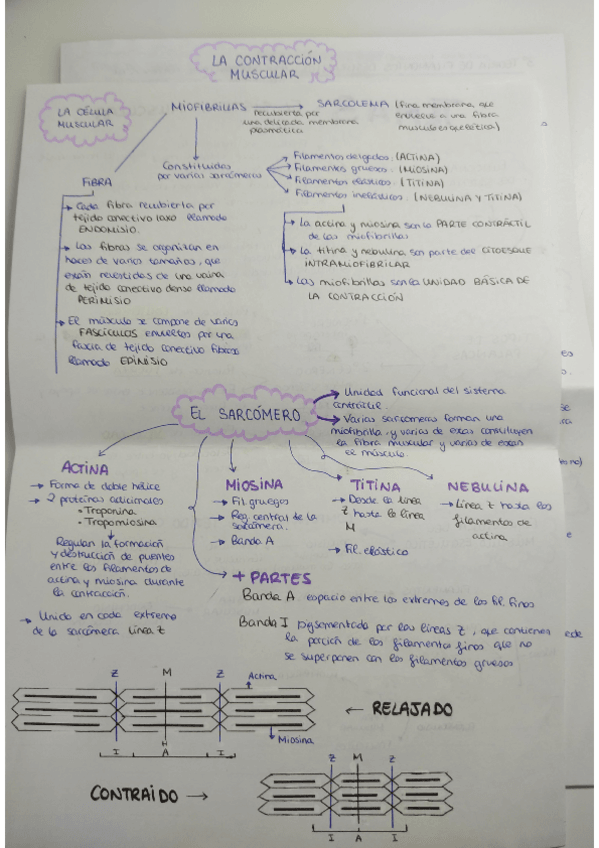 LA CONTRACCIÓN
MUSCULAR
LA CÉLULA
MUSCULAR
MIOFIBRILLAS
recubierta por
una delicada membrana
plasmática
SARCOLEMA (fina membrana, que
envuelve a una fibra
musculoesquelética)
Constituidas
por varias sarcómeros
Filamentos delgados (ACTINA)
Filamentos gruesos (MIOSINA)
Filamentos elásticos (TITINA)
Filamentos inelásticos (NEBULINA Y TITINA)
FIBRA
→ Cada fibra recubierta por
tejido conectivo laxo llamado
ENDOMISIO.
→ Las fibras se organizan en
haces de varios tamaños, que
están revestidas de una vaina
de tejido conectivo denso llamado
PERIMISIO
→ El músculo se compone de varios
FASCÍCULOS envueltos por una
fascia de tejido conectivo fibroso
llamado EPIMISIO
→ La actina y miosina son la PARTE CONTRÁCTIL
de las miofibrillas
→ La titina y nebulina son parte del CITOESQUE
INTRAMIOFIBRILAR
→ Las miofibrillas son la UNIDAD BÁSICA DE
LA CONTRACCIÓN
EL SARCÓMERO
→ Unidad funcional del sistema
contráctil.
→ Varias sarcómeras forman una
miofibrilla, y varias de esas constituyen
la fibra muscular y varias de esas
el músculo.
ACTINA
→ Forma de doble hélice
→ 2 proteínas adicionales
• Troponina
• Tropomiosina
Regulan la formación
y destrucción de puentes
entre los filamentos de
actina y miosina durante
la contracción.
→ Unido en cada extremo
de la sarcómera línea Z
MIOSINA
→ Fil gruesos
→ Reg. central de la
sarcómera.
→ Banda A
TITINA
→ Desde la línea
Z hasta la línea
M
→ Fil. elástico
NEBULINA
→ Línea Z hasta los
filamentos de
actina
+ PARTES
Banda A espacio entre los extremos de los fil. finos
Banda I por las líneas Z, que contienen
la porción de los filamentos finos que no
se superponen con los filamentos gruesos
Z M Z Actina
← RELAJADO
Miosina
H
I A I
CONTRAIDO →
Z M Z
I A I